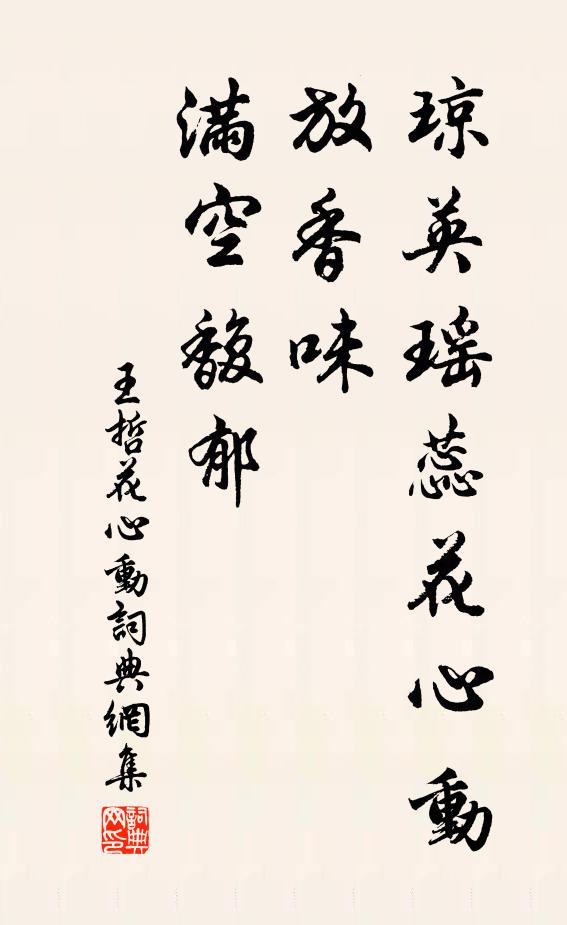 琼英瑶蕊花心動
放香味
滿空馥郁
王哲花心動詞典網集
詞典
网印